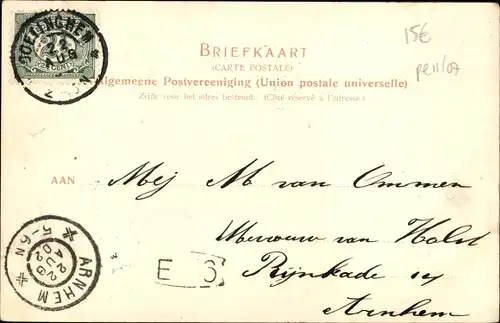 DOETINCHEM
22
AUG
BRIEFKAART
(CARTE POSTALE)
Algemeene Postvereeniging (Union postale universelle)
Zijde voor het adres bestemd. (Côté réservé à l'adresse.)
15€
AAN
Mej M van Ommen
Mevrouw van Holst
Rijnkade 14
Arnhem
ARNHEM
22
AUG
02
5-6N
E 3